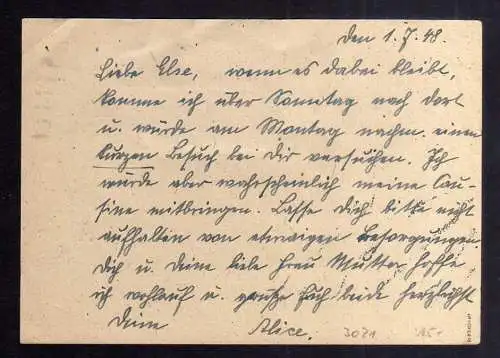 den 1. 7. 48.
Liebe Else, wenn es dabei bleibt,
komme ich über Sonntag nach dort
u. würde am Montag nachm. einen
kurzen Besuch bei Dir versuchen. Ich
würde aber wahrscheinlich meine Cou-
sine mitbringen. Lasse Dich bitte nicht
aufhalten von etwaigen Besorgungen.
Dich u. Deine liebe Frau Mutter hoffe
ich wohlauf u. grüße Euch beide herzlichst
Deine Alice.
3071 15.-